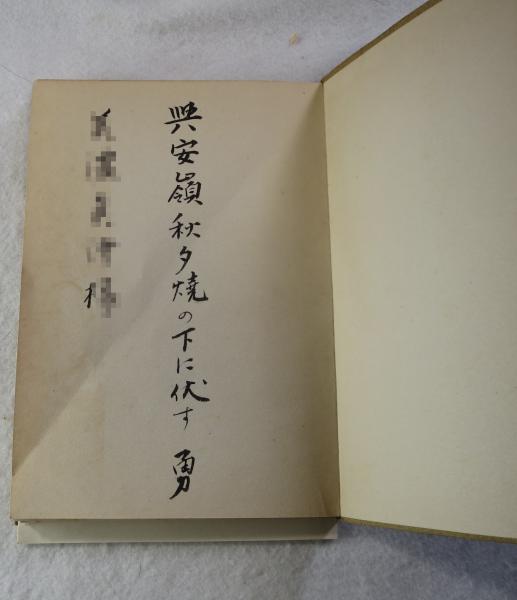 興安嶺秋夕燒の下に伏す 勇
様